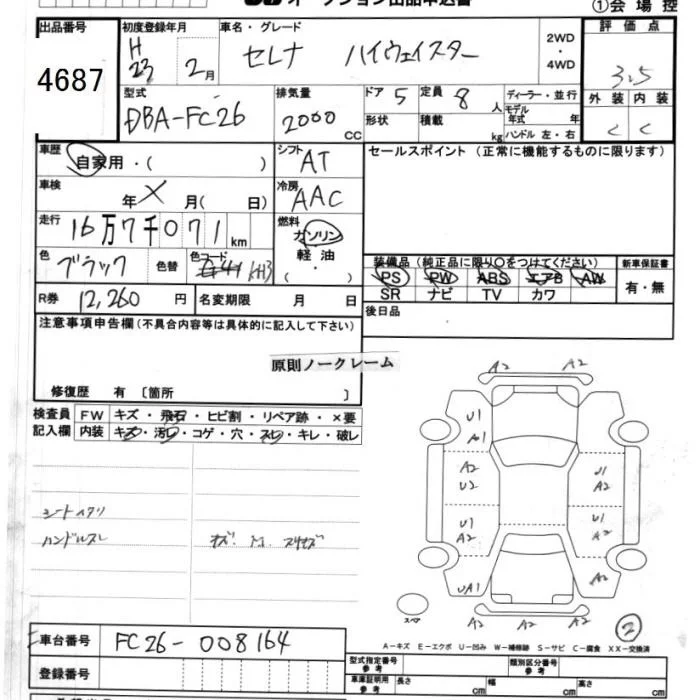 オークション出品申込書
①会場控
出品番号
4687
初度登録年月
H 23 2月
車名・グレード
セレナ ハイウェイスター
2WD
・
4WD
評価点
3.5
外装 内装
C C
型式
DBA-FC26
排気量
2000 CC
ドア 5
定員 8 人
形状
積載 kg
ディーラー・並行
モデル年式 年
ハンドル 左・右
車歴
自家用・( )
シフト AT
セールスポイント(正常に機能するものに限ります)
車検
年 X 月( 日)
冷房 AAC
走行
16万7千071 km
燃料
ガソリン
軽油
( ・ )
色 ブラック
色替
色コード
KH3
装備品(純正品に限り○をつけてください)
PS PW ABS エアB AW
SR ナビ TV カワ
新車保証書
有・無
R券 12,260 円
名変期限 月 日
後日品
注意事項申告欄(不具合内容等は具体的に記入して下さい)
原則ノークレーム
修復歴 有 〔箇所 〕
検査員
記入欄
FW キズ・飛石・ヒビ割・リペア跡・×要
内装 キズ・汚れ・コゲ・穴・スレ・キレ・破レ
シートヘタリ
ハンドルスレ
A2 A2
U1
A1
A2
U2
U1
A2
U1
A2
U1
A2
UA1
A2
A2 A2
スペア
②
A-キズ E-エクボ U-凹み W-補修跡 S-サビ C-腐食 XX-交換済
車台番号
FC26-008164
登録番号
型式指定番号
参考
類別区分番号
参考
車庫証明用
参考
長さ cm 幅 cm 高さ cm